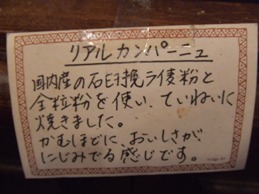 リアルカンパーニュ
国内産の石臼挽き麦粉と
全粒粉を使い、ていねいに
焼きました。
かむほどに、おいしさが
にじみでる感じです。